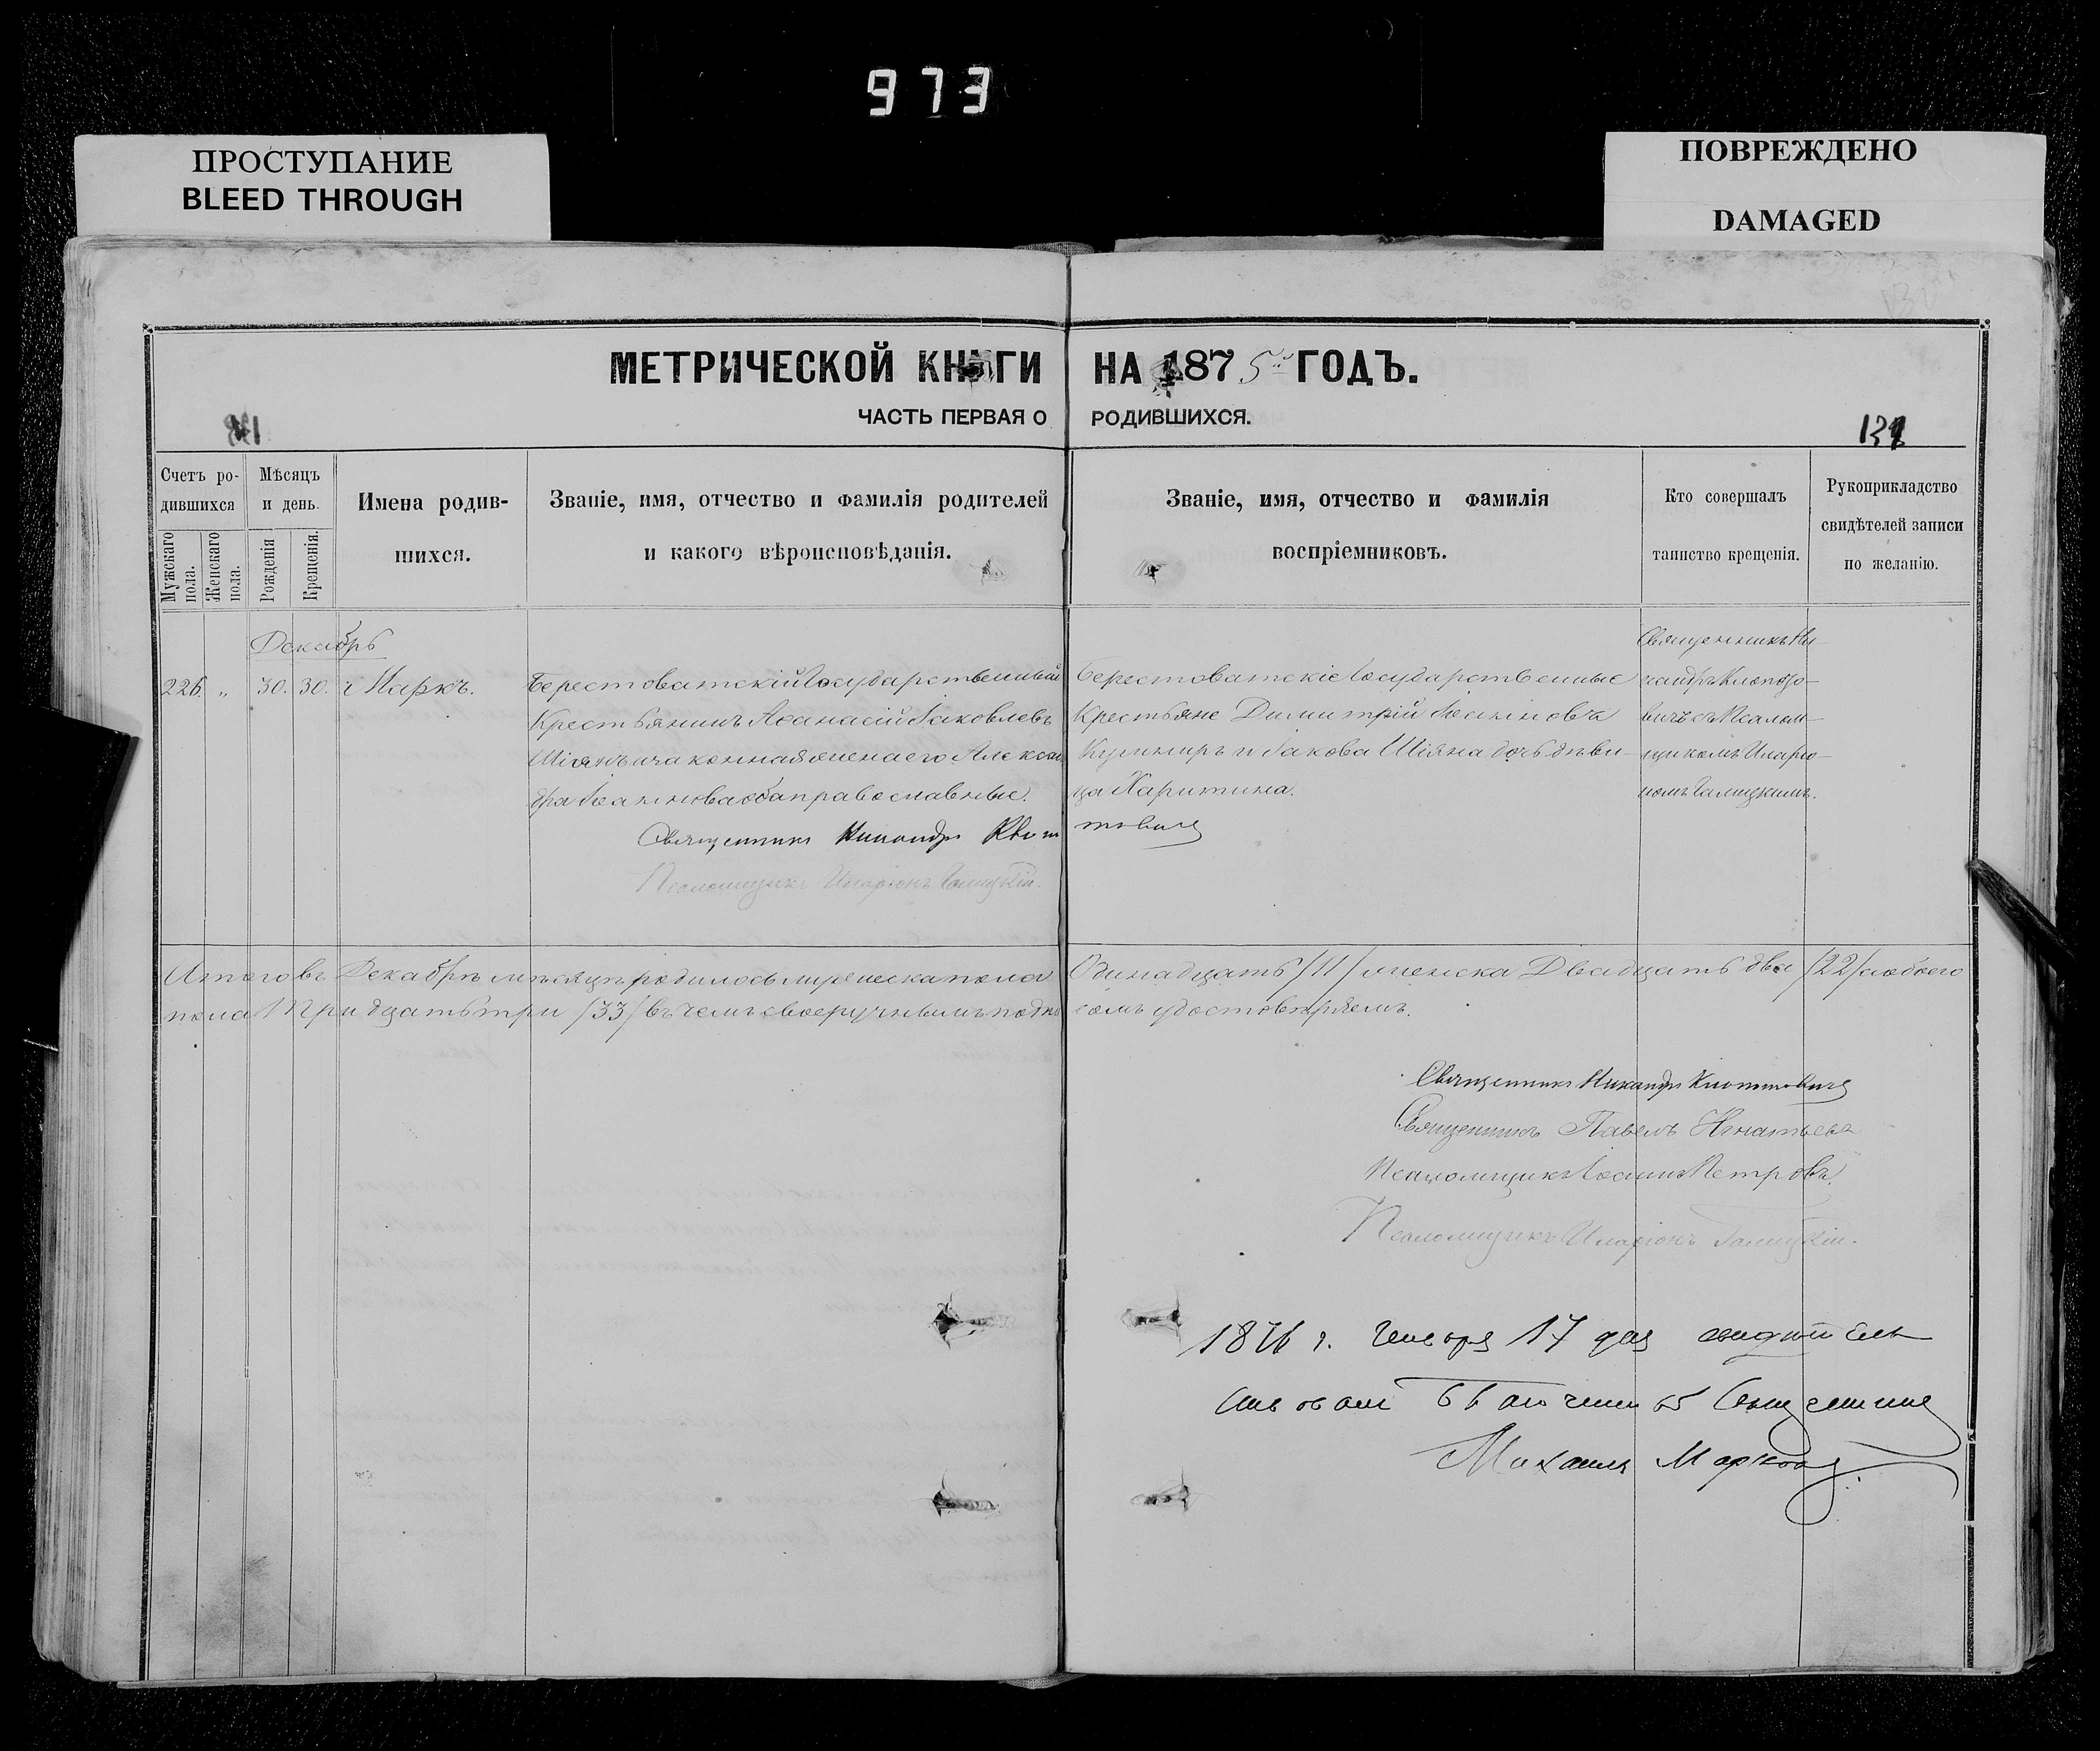 973
ПРОСТУПАНИЕ
BLEED THROUGH
ПОВРЕЖДЕНО
DAMAGED
МЕТРИЧЕСКОЙ КНИГИ НА 1875 ГОДЪ.
ЧАСТЬ ПЕРВАЯ О РОДИВШИХСЯ.
Счетъ ро-
дившихся
Мужскаго
пола.
Женскаго
пола.
Мѣсяцъ
и день.
Рожденія
Крещенія.
Имена родив-
шихся.
Званіе, имя, отчество и фамилія родителей
и какого вѣроисповѣданія.
Званіе, имя, отчество и фамилія
воспріемниковъ.
Кто совершалъ
таинство крещенія.
Рукоприкладство
свидѣтелей записи
по желанію.
Декабрь
226. „ 30. 30. Маркъ.
Берестоватскій Государственный
Крестьянинъ Аѳанасій Іаковлевъ
Шіянъ и законная жена его Алексан
дра Іоакимова оба православные.
Священникъ Никандръ
Псаломщикъ Иларіонъ Галицкій.
Берестоватскіе Государственные
Крестьяне Димитрій Іоакимовъ
и Іакова Шіяна дочь дѣви-
ца Харитина.
Священникъ Ни-
кандръ
вичъ съ Псалом-
щикомъ Иларіо-
номъ Галицкимъ.
Итого въ Декабрѣ мѣсяцѣ родилось мужеска пола Одинадцать /11/ женска Двадцать два /22/ а обоего
пола Тридцать три /33/ въ чемъ своеручнымъ подпи сомъ удостовѣряемъ.
Священникъ Никандръ
Священникъ Павелъ Игнатьевъ
Псаломщикъ Іоаннъ Петровъ.
Псаломщикъ Иларіонъ Галицкій.
1876 г. Генваря 17 дня свидѣтель
ствовалъ Благочинный Священникъ
Михаилъ Марков